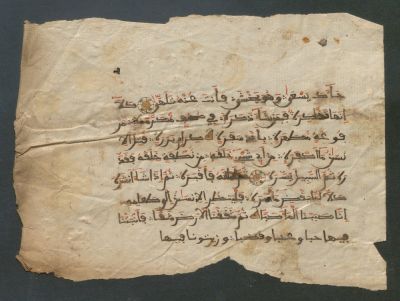 جاءك يسعى وهو يخشى فأنت عنه تلهى كلا
إنها تذكرة فمن شاء ذكره في صحف مكرمة مر
فوعة مطهرة بأيدي سفرة كرام بررة قتل الا
نسن ما أكفره من أي شيء خلقه من نطفة خلقه فقد
ره ثم السبيل يسره ثم أماته فأقبره ثم إذا شاء انشره
كلا لما يقض ما أمره فلينظر الإنسن إلى طعامه
إنا صببنا الماء صبا ثم شققنا الأرض شقا فأنبتنا
فيها حبا وعنبا وقضبا وزيتونا